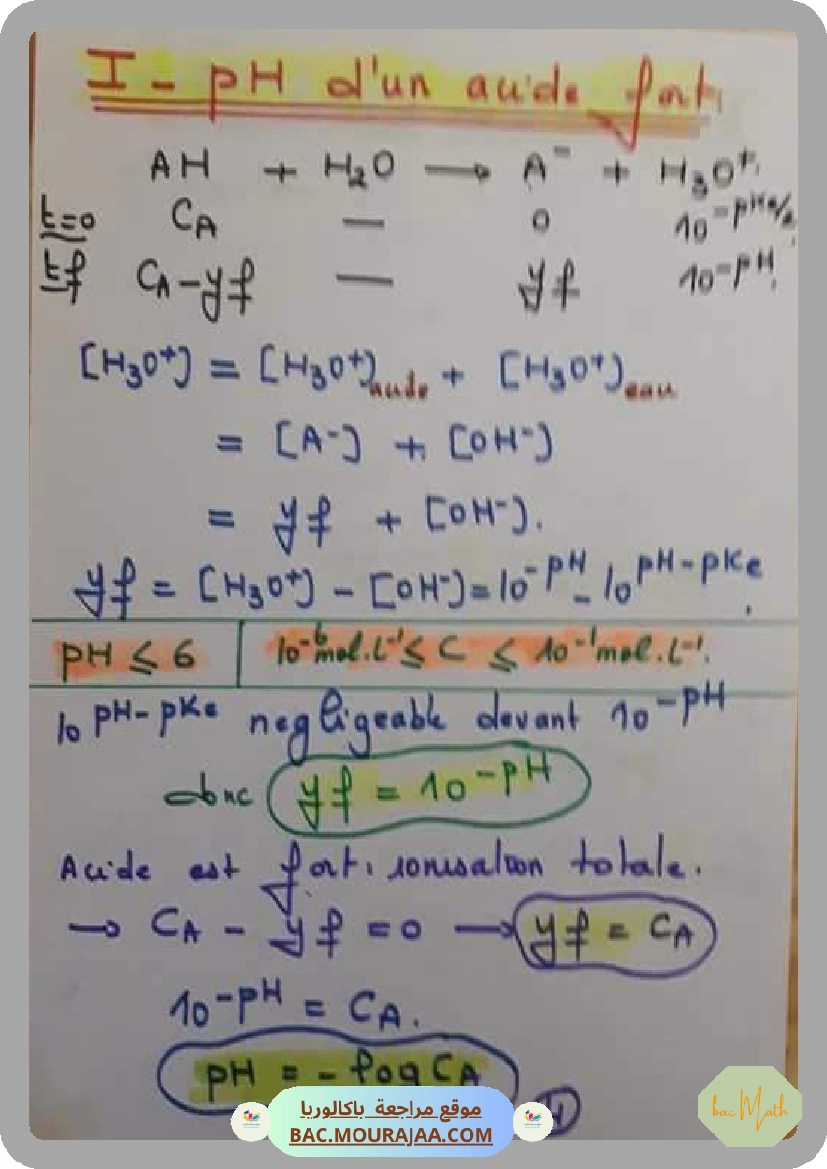 I - pH d'un acide fort.
AH + H₂O ⟶ A⁻ + H₃O⁺
t=0 CA — 0 10⁻ᵖᴷᵉ/²
tf CA-yf — yf 10⁻ᵖᴴ
[H₃O⁺] = [H₃O⁺]acide + [H₃O⁺]eau
= [A⁻] + [OH⁻]
= yf + [OH⁻].
yf = [H₃O⁺] - [OH⁻] = 10⁻ᵖᴴ - 10ᵖᴴ⁻ᵖᴷᵉ.
pH ≤ 6 10⁻⁶mol.L⁻¹ ≤ C ≤ 10⁻¹mol.L⁻¹.
10ᵖᴴ⁻ᵖᴷᵉ negligeable devant 10⁻ᵖᴴ
donc yf = 10⁻ᵖᴴ
Acide est fort: ionisation totale.
→ CA - yf = 0 ⟶ yf = CA
10⁻ᵖᴴ = CA.
pH = - log CA
موقع مراجعة باكالوريا
BAC.MOURAJAA.COM
bac Math